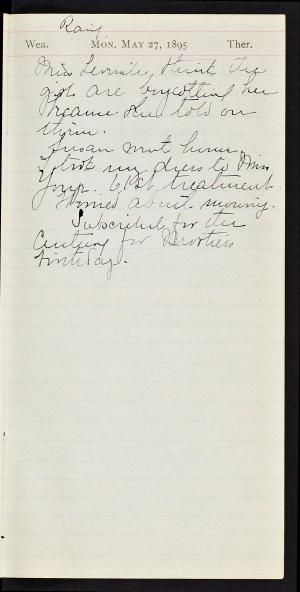 Rainy
Wea. MON. MAY 27, 1895 Ther.
Miss thinks the
girls are boycotting her
because she told on
them.
Susan went home.
I took my dress to Miss
61st treatment.
about moving.
Subscribed for the
Century for Mother's
birthday.